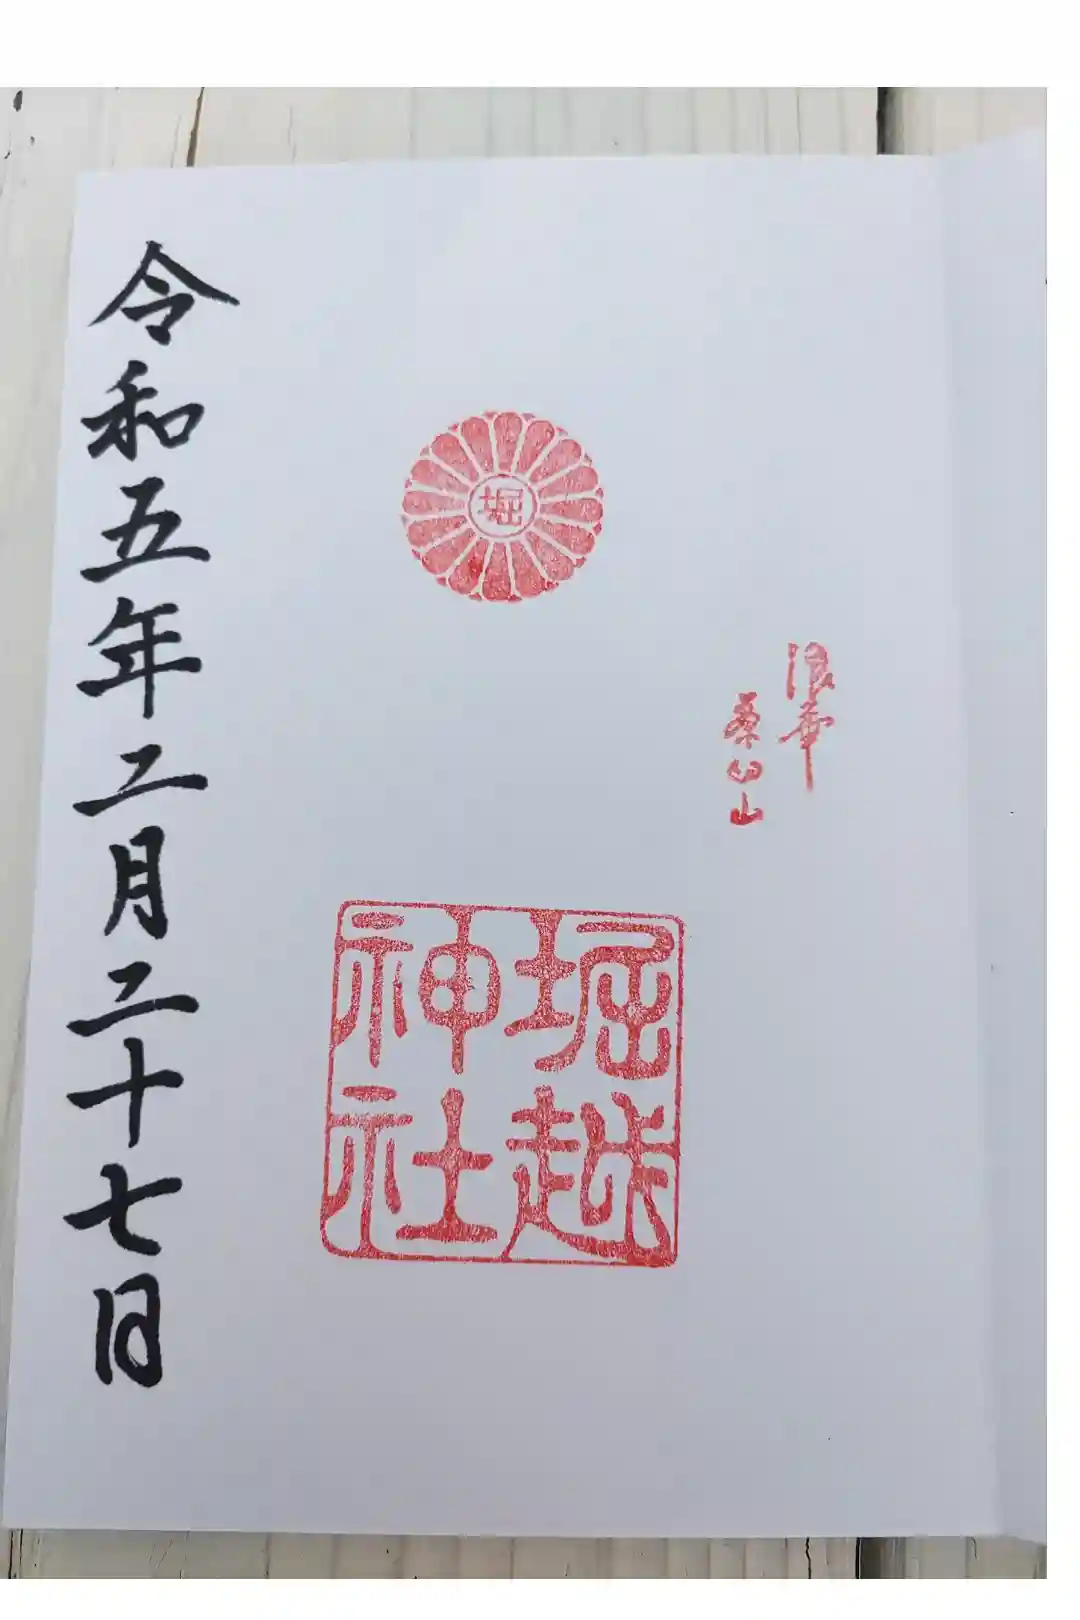 浪華
茶臼山
堀
堀越
神社
令和五年二月二十七日